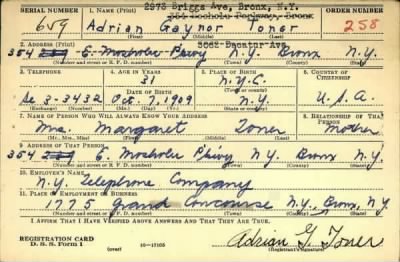 2973 Briggs Ave, Bronx, N.Y.
SERIAL NUMBER 1. NAME (Print) ORDER NUMBER
659 Adrian Gaynor Toner 258
(First) (Middle) (Last)
2. ADDRESS (Print) 3062 Decatur Ave
354 E. Mosholu Pkwy N.Y. Bronx N.Y.
(Number and street or R. F. D. number) (Town) (County) (State)
3. TELEPHONE 4. AGE IN YEARS 5. PLACE OF BIRTH 6. COUNTRY OF CITIZENSHIP
31 N.Y.C.
DATE OF BIRTH (Town or county)
Se 3-3432 Oct. 7, 1909 N.Y. U.S.A.
(Exchange) (No.) (Mo.) (Day) (Yr.) (State or country)
7. NAME OF PERSON WHO WILL ALWAYS KNOW YOUR ADDRESS 8. RELATIONSHIP OF THAT PERSON
Mrs. Margaret Toner Mother
(Mr., Mrs., Miss) (First) (Middle) (Last)
9. ADDRESS OF THAT PERSON
354 E. Mosholu Pkwy N.Y. Bronx N.Y.
(Number and street or R. F. D. number) (Town) (County) (State)
10. EMPLOYER'S NAME
N.Y. Telephone Company
11. PLACE OF EMPLOYMENT OR BUSINESS
1775 Grand Concourse N.Y., Bronx, N.Y.
(Number and street or R. F. D. number) (Town) (County) (State)
I AFFIRM THAT I HAVE VERIFIED ABOVE ANSWERS AND THAT THEY ARE TRUE.
REGISTRATION CARD
D. S. S. Form 1 (over) 16—17105 Adrian G. Toner